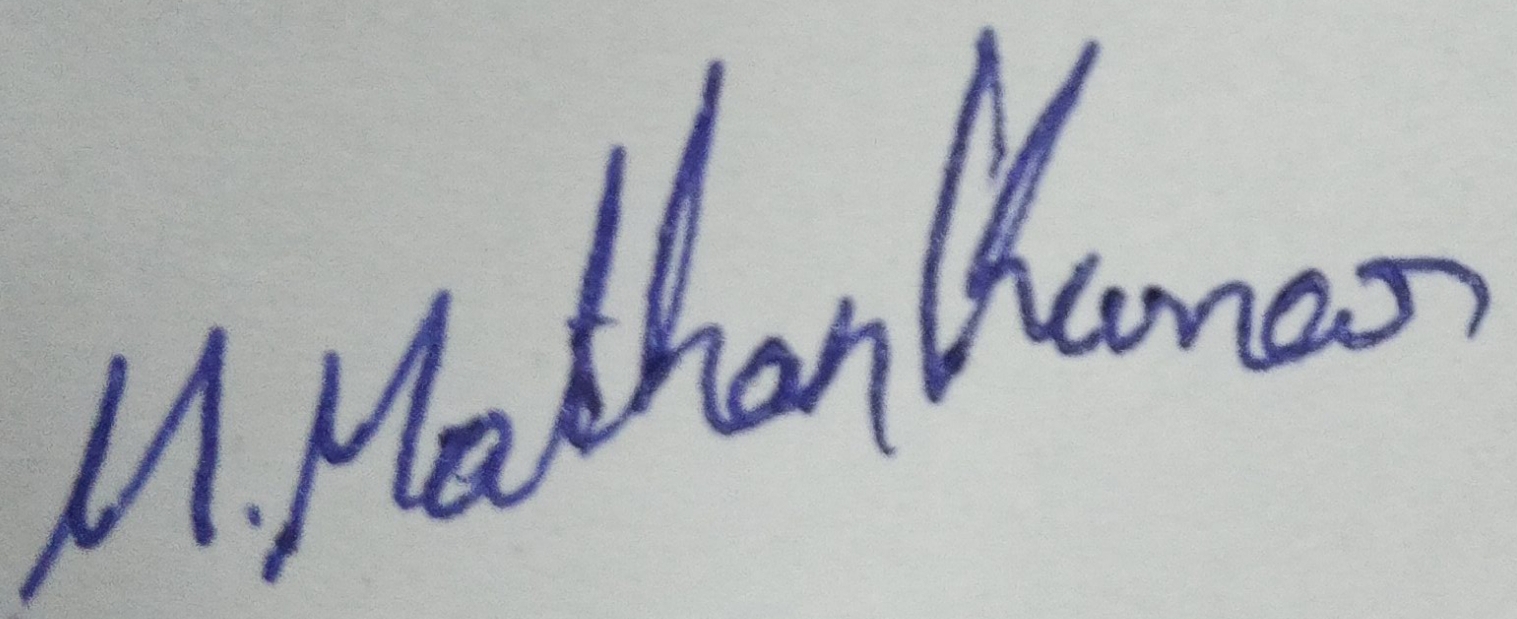 M. Mathan Kumar